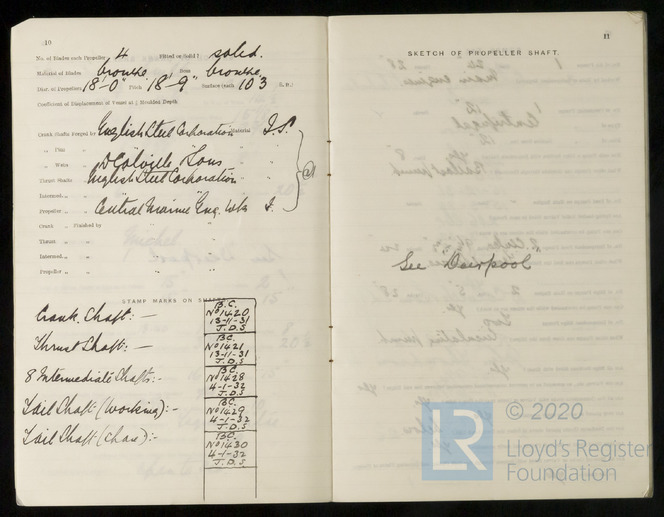 10
No. of Blades each Propeller 4 Fitted or Solid? solid.
Material of Blades bronthe. Boss bronthe.
Diar. of Propeller 18'-0" Pitch 18'-9" Surface (each) 103 S. Ft.)
Coefficient of Displacement of Vessel at ¾ Moulded Depth
Crank Shafts Forged by English Steel Corporation Material I.S.
" Pins " "
" Webs " D Colville & Sons "
Thrust Shafts " English Steel Corporation "
Intermed. " " "
Propeller " " Central Marine Eng. Wks I.
Crank " Finished by
Thrust " "
Intermed. " "
Propeller " "
STAMP MARKS ON SHAFTS
Crank Shaft: —
B.C.
No 1420
13-11-31
J.D.S
Thrust Shaft: —
B.C.
No 1421
13-11-31
J.D.S
8 Intermediate Shafts: -
B.C.
No 1428
4-1-32
J.D.S
Tail Shaft (Working): -
B.C.
No 1429
4-1-32
J.D.S
Tail Shaft (Chase): -
B.C.
No 1430
4-1-32
J.D.S
11
SKETCH OF PROPELLER SHAFT.
See Deirpool
LR
© 2020
Lloyd's Register
Foundation